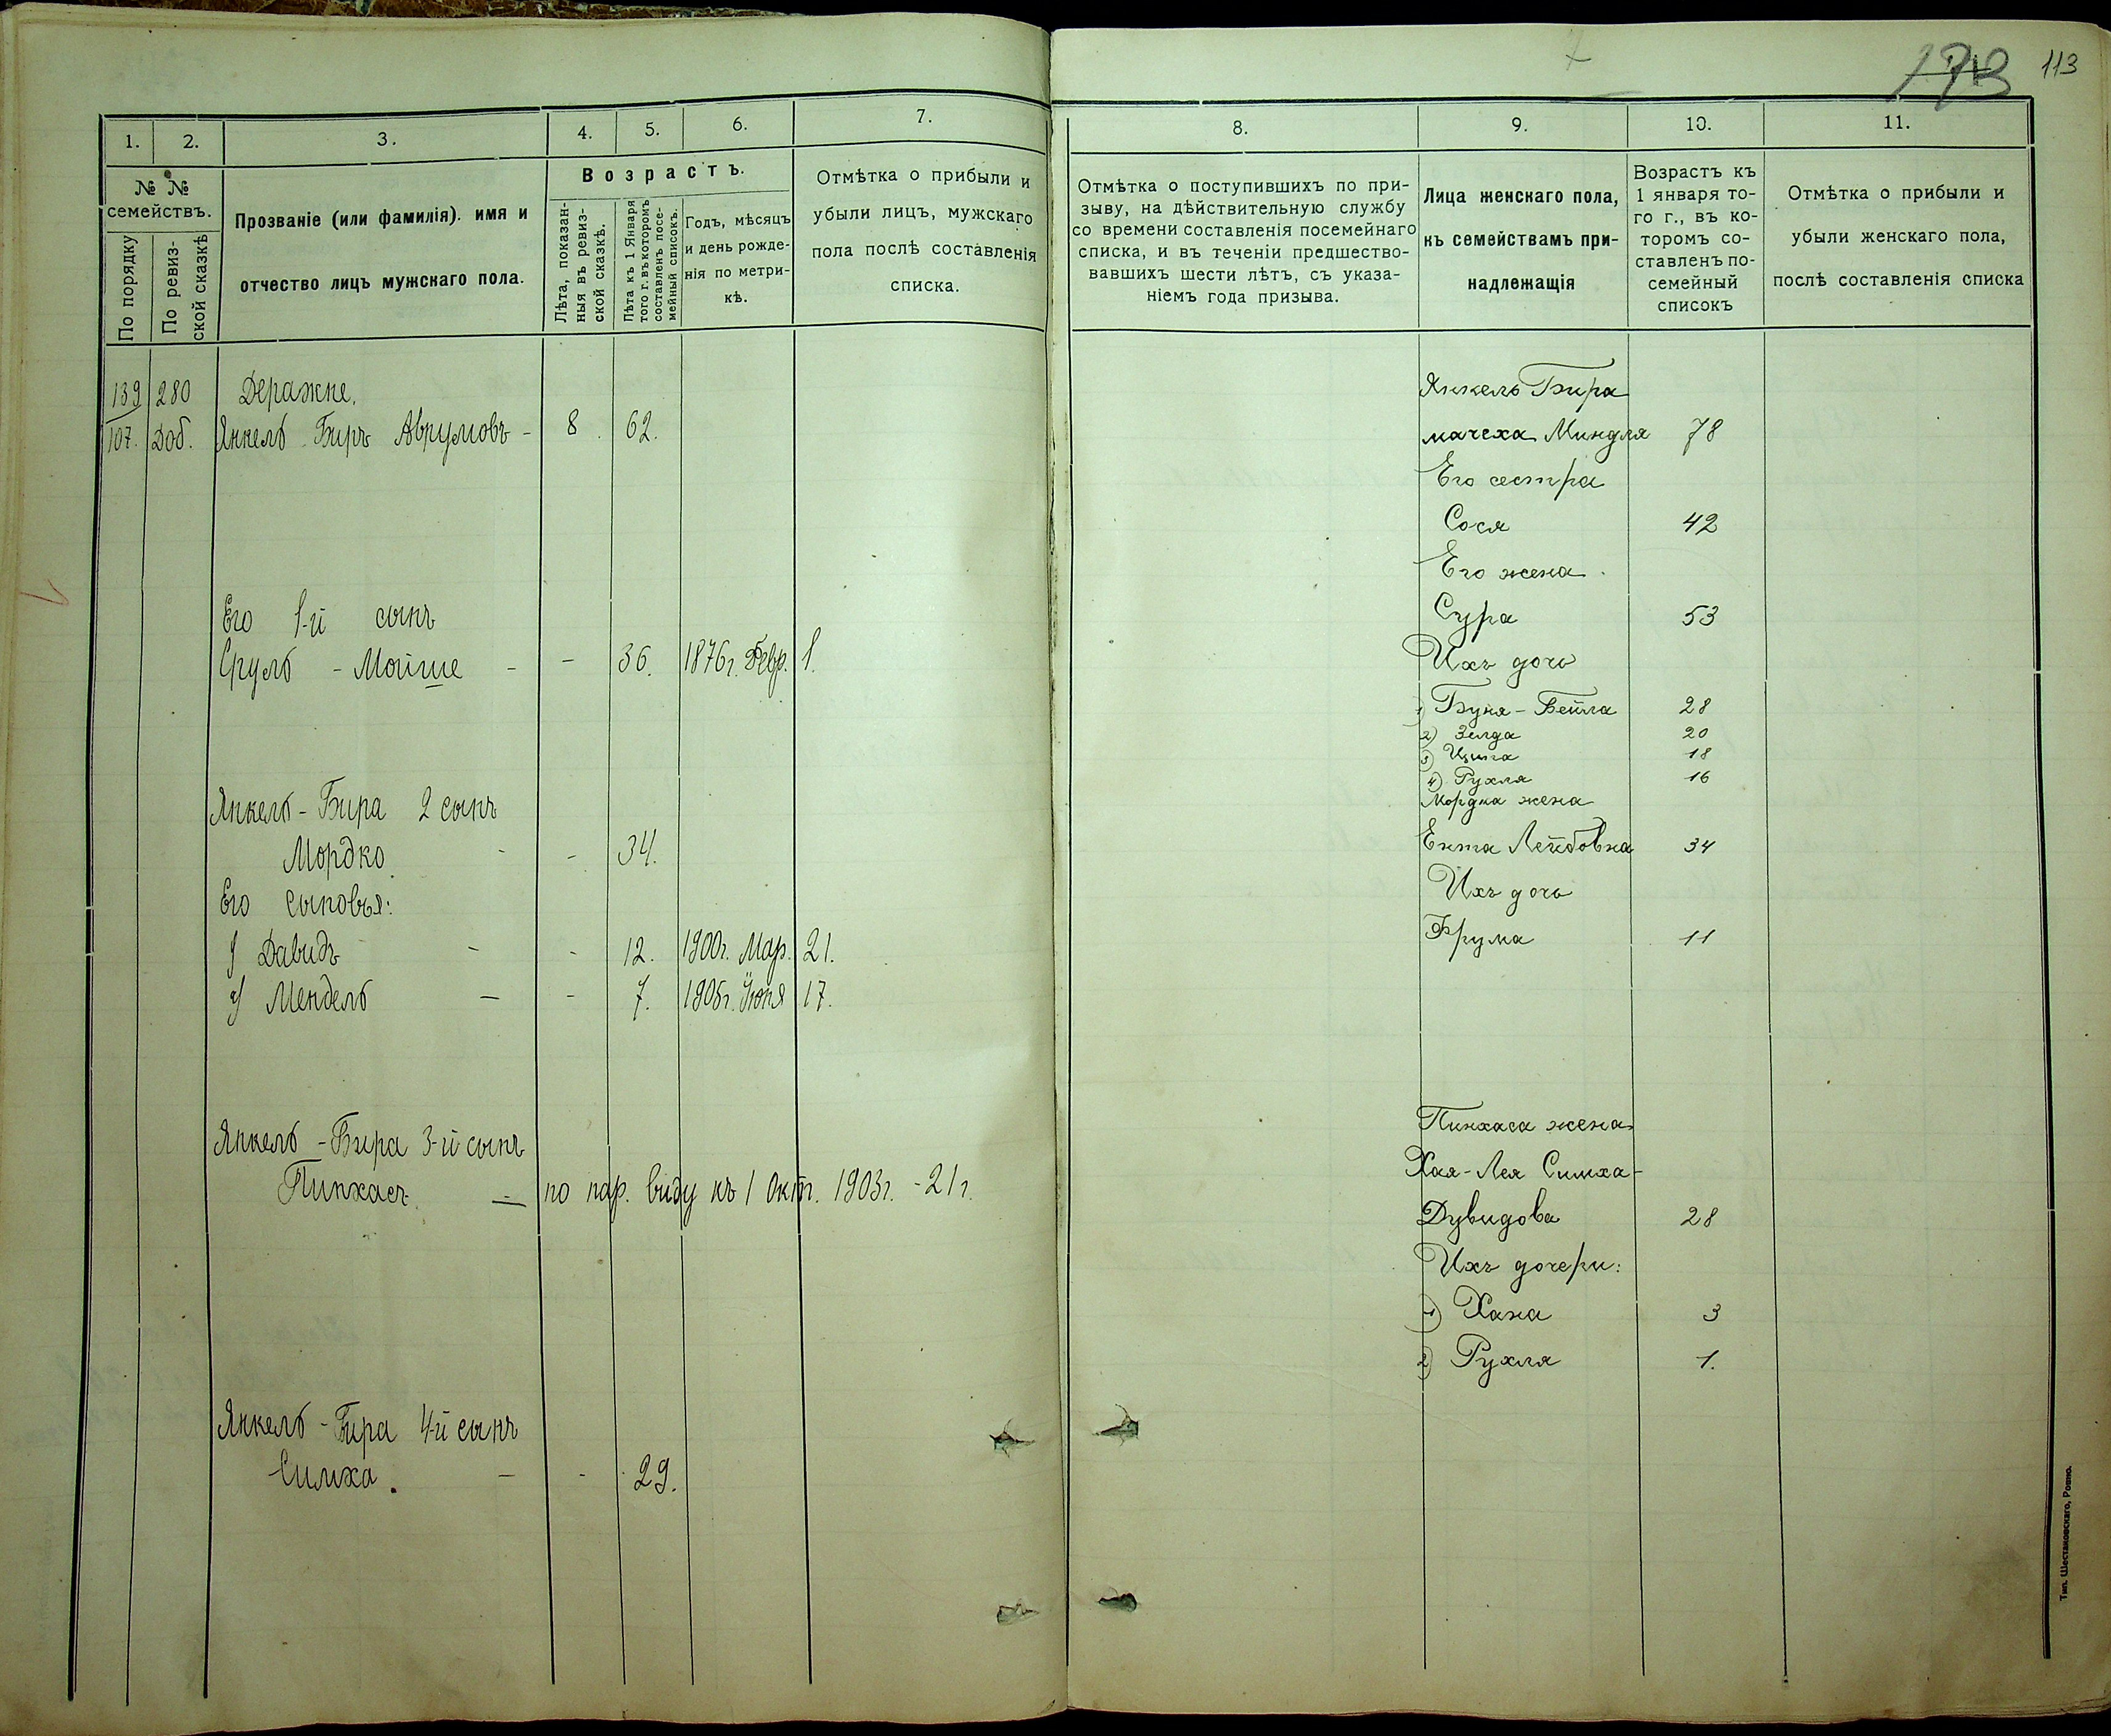 113
1.
2.
3.
4.
5.
6.
7.
№ №
семействъ.
По порядку
По ревиз-
ской сказкѣ
Прозваніе (или фамилія). имя и
отчество лицъ мужскаго пола.
Возрастъ.
Лѣта, показан-
ныя въ ревиз-
ской сказкѣ.
Лѣта къ 1 Января
того г. въ которомъ
составленъ посе-
мейный списокъ.
Годъ, мѣсяцъ
и день рожде-
нія по метри-
кѣ.
Отмѣтка о прибыли и
убыли лицъ, мужскаго
пола послѣ составленія
списка.
139 280 Деражне.
107. Доб. Янкель Биръ Аврумовъ - 8. 62.
Его 1-й сынъ
Сруль - Мойше - - 36. 1876г. Февр. 1.
Янкель - Бира 2 сынъ
Мордко - - 34.
Его сыновья:
1) Давидъ - - 12. 1900г. Мар. 21.
2) Мендель - - 7. 1905г. Іюня 17.
Янкель - Бира 3-й сынъ
Пинхасъ. - по нар. виду къ 1 Окт. 1903г. - 21 г.
Янкель - Бира 4-й сынъ
Симха. - - 29.
8.
9.
10.
11.
Отмѣтка о поступившихъ по при-
зыву, на дѣйствительную службу
со времени составленія посемейнаго
списка, и въ теченіи предшество-
вавшихъ шести лѣтъ, съ указа-
ніемъ года призыва.
Лица женскаго пола,
къ семействамъ при-
надлежащія
Возрастъ къ
1 января то-
го г., въ ко-
торомъ со-
ставленъ по-
семейный
списокъ
Отмѣтка о прибыли и
убыли женскаго пола,
послѣ составленія списка
Янкель Бира
мачеха Миндля 78
Его сестра
Сося 42
Его жена
Сура 53
Ихъ дочь
1) Буня - Бейла 28
2) Зелда 20
3) 18
4) Рухля 16
Мордка жена
Ента Лейбовна 34
Ихъ дочь
Фрума 11
Пинхаса жена
Хая - Лея Симха-
Дувидова 28
Ихъ дочери:
1) Хана 3
2) Рухля 1.
Тип. Шестаковскаго, Ровно.